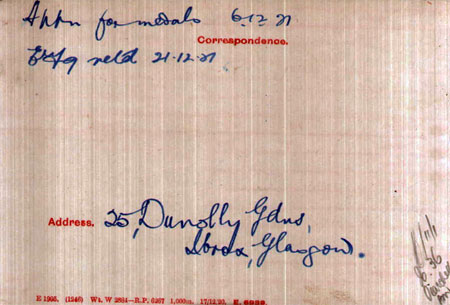 Appn for medals 6.12.21
Correspondence.
retd 21.12.21
Address. 25, Dunolly Gdns,
Ibrox, Glasgow.
E 1965. (1246) Wt. W 2884—R.P. 6267 1,000m. 17/12/20.